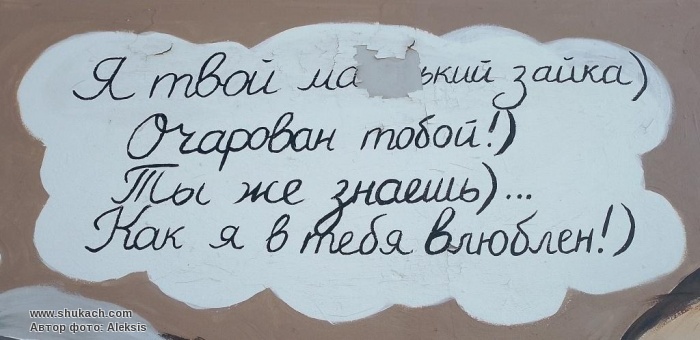 Я твой ма ький зайка)
Очарован тобой!)
Ты же знаешь)...
Как я в тебя влюблен!)
www.shukach.com
Автор фото: Aleksis